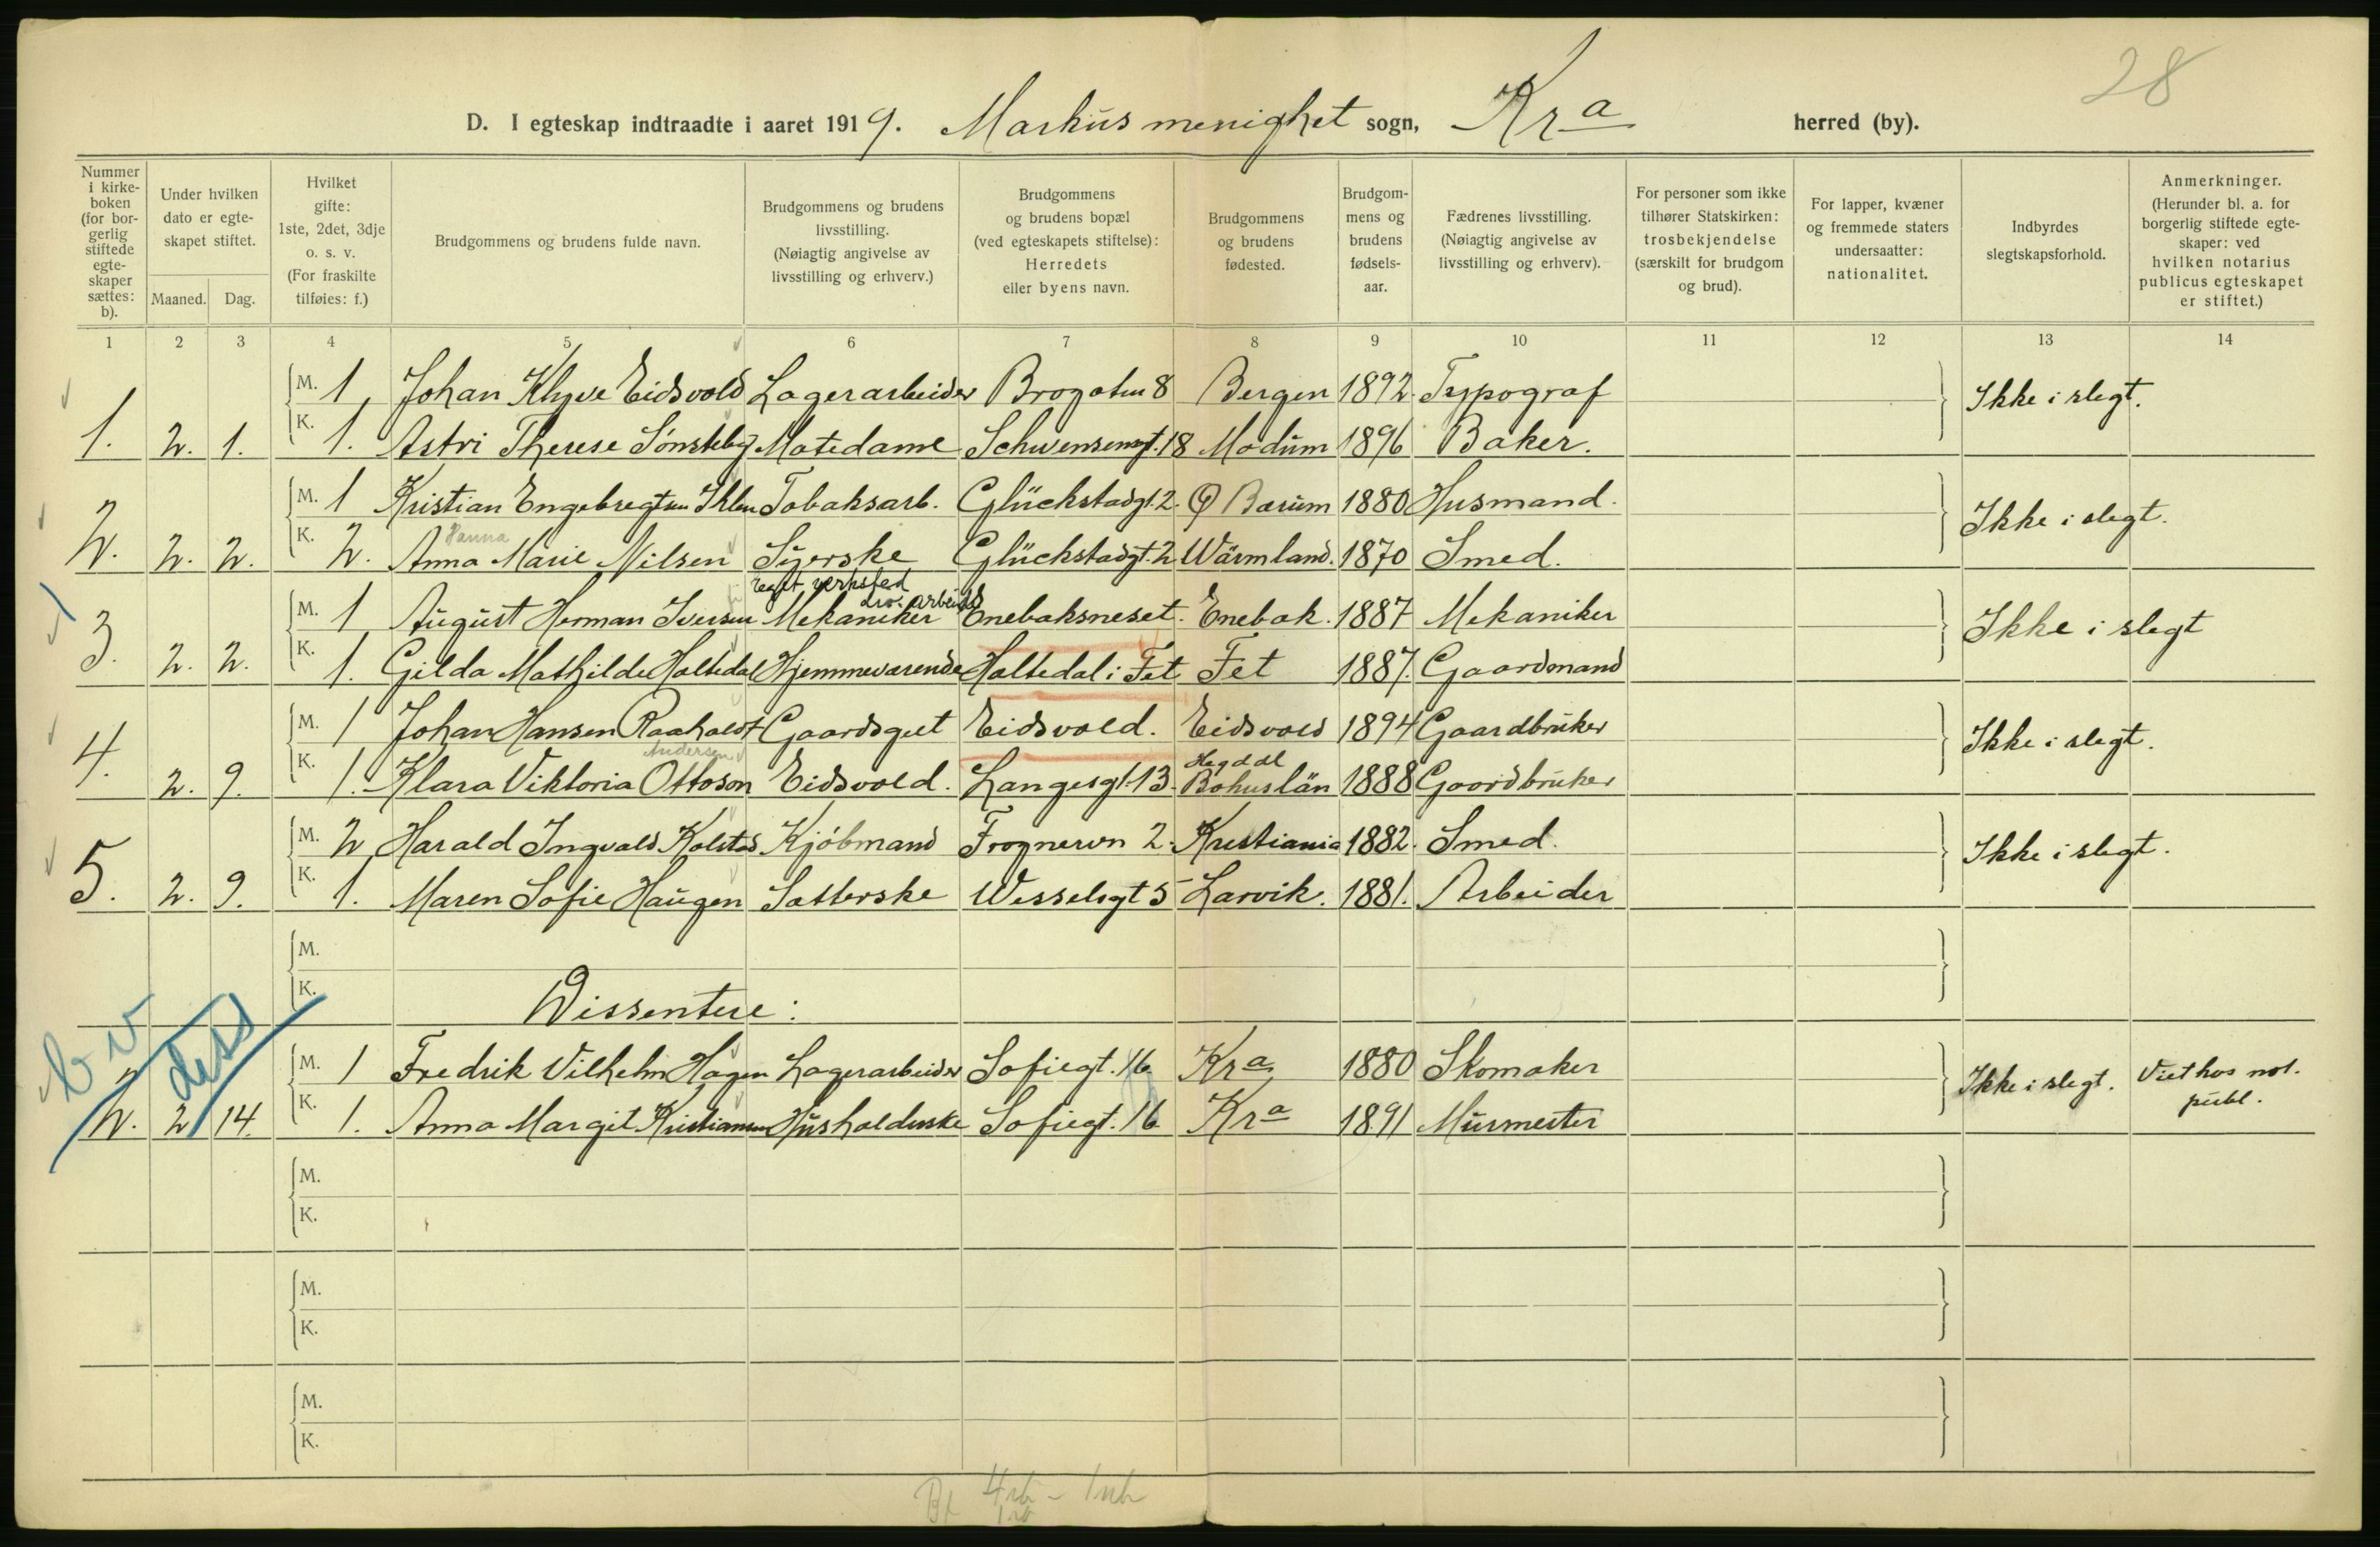 28
D. I egteskap indtraadte i aaret 1919. Markus menighet sogn, Kra herred (by).
Nummer i kirke-boken (for bor-gerlig stiftede egte-skaper sættes: b).
Under hvilken dato er egte-skapet stiftet.
Maaned. Dag.
Hvilket gifte: 1ste, 2det, 3dje o. s. v. (For fraskilte tilføies: f.)
Brudgommens og brudens fulde navn.
Brudgommens og brudens livsstilling. (Nøiagtig angivelse av livsstilling og erhverv.)
Brudgommens og brudens bopæl (ved egteskapets stiftelse): Herredets eller byens navn.
Brudgommens og brudens fødested.
Brudgom-mens og brudens fødsels-aar.
Fædrenes livsstilling. (Nøiagtig angivelse av livsstilling og erhverv).
For personer som ikke tilhører Statskirken: trosbekjendelse (særskilt for brudgom og brud).
For lapper, kvæner og fremmede staters undersaatter: nationalitet.
Indbyrdes slegtskapsforhold.
Anmerkninger. (Herunder bl. a. for borgerlig stiftede egte-skaper: ved hvilken notarius publicus egteskapet er stiftet.)
1 2 3 4 5 6 7 8 9 10 11 12 13 14
M. 1 Johan Klyve Eidsvold Lagerarbeider Brogaten 8 Bergen 1892 Typograf Ikke i slegt.
1. 2. 1. K. 1. Astri Therese Sønsteby Motedame Schwensensgt. 18 Modum 1896 Baker.
M. 1 Kristian Engebregtsen Ihlen Tobaksarb. Glückstadgt. 2. Bærum 1880 Husmand. Ikke i slegt.
Hanna
2. 2. 2. K. 2. Anna Marie Nilsen Syerske Glückstadgt. 2 Wärmland. 1870 Smed.
Eget verksted
div. arbeide
M. 1 August Herman Iversen Mekaniker Enebaksneset. Enebak. 1887 Mekaniker Ikke i slegt
3. 2. 2. K. 1. Gilda Mathilde Holtedal Hjemmeværende Holtedal i Fet Fet 1887. Gaardmand
M. 1 Johan Hansen Raaholdt Gaardsgut Eidsvold. Eidsvold 1894 Gaardbruker Ikke i slegt.
Andersen
4. 2. 9. K. 1. Klara Viktoria Ottoson Eidsvold. Langesgt. 13. Bohuslän 1888 Gaardbruker
M. 2 Harald Ingvald Kolstad Kjøbmand Frognervn 2. Kristiania 1882. Smed. Ikke i slegt.
5. 2. 9. K. 1. Maren Sofie Haugen Satterske Wesselsgt 5 Larvik. 1881. Arbeider
M.
K. Dissentere:
bv
diss
M. 1 Fredrik Vilhelm Hagen Lagerarbeider Sofiegt. 16 Kra 1880 Skomaker Ikke i slegt. Viet hos not. publ.
2. 2 14. K. 1. Anna Margit Kristiansen Husholderske Sofiegt. 16 Kra 1891 Murmester
M.
K.
M.
K.
M.
K.